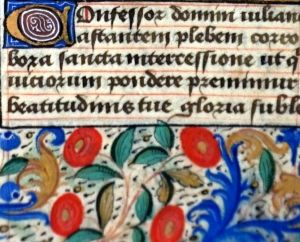 Confessor domini iulian
astantem plebem corro
bora sancta intercessione ut q
viciorum pondere premimur
beatitudinis tue gloria suble